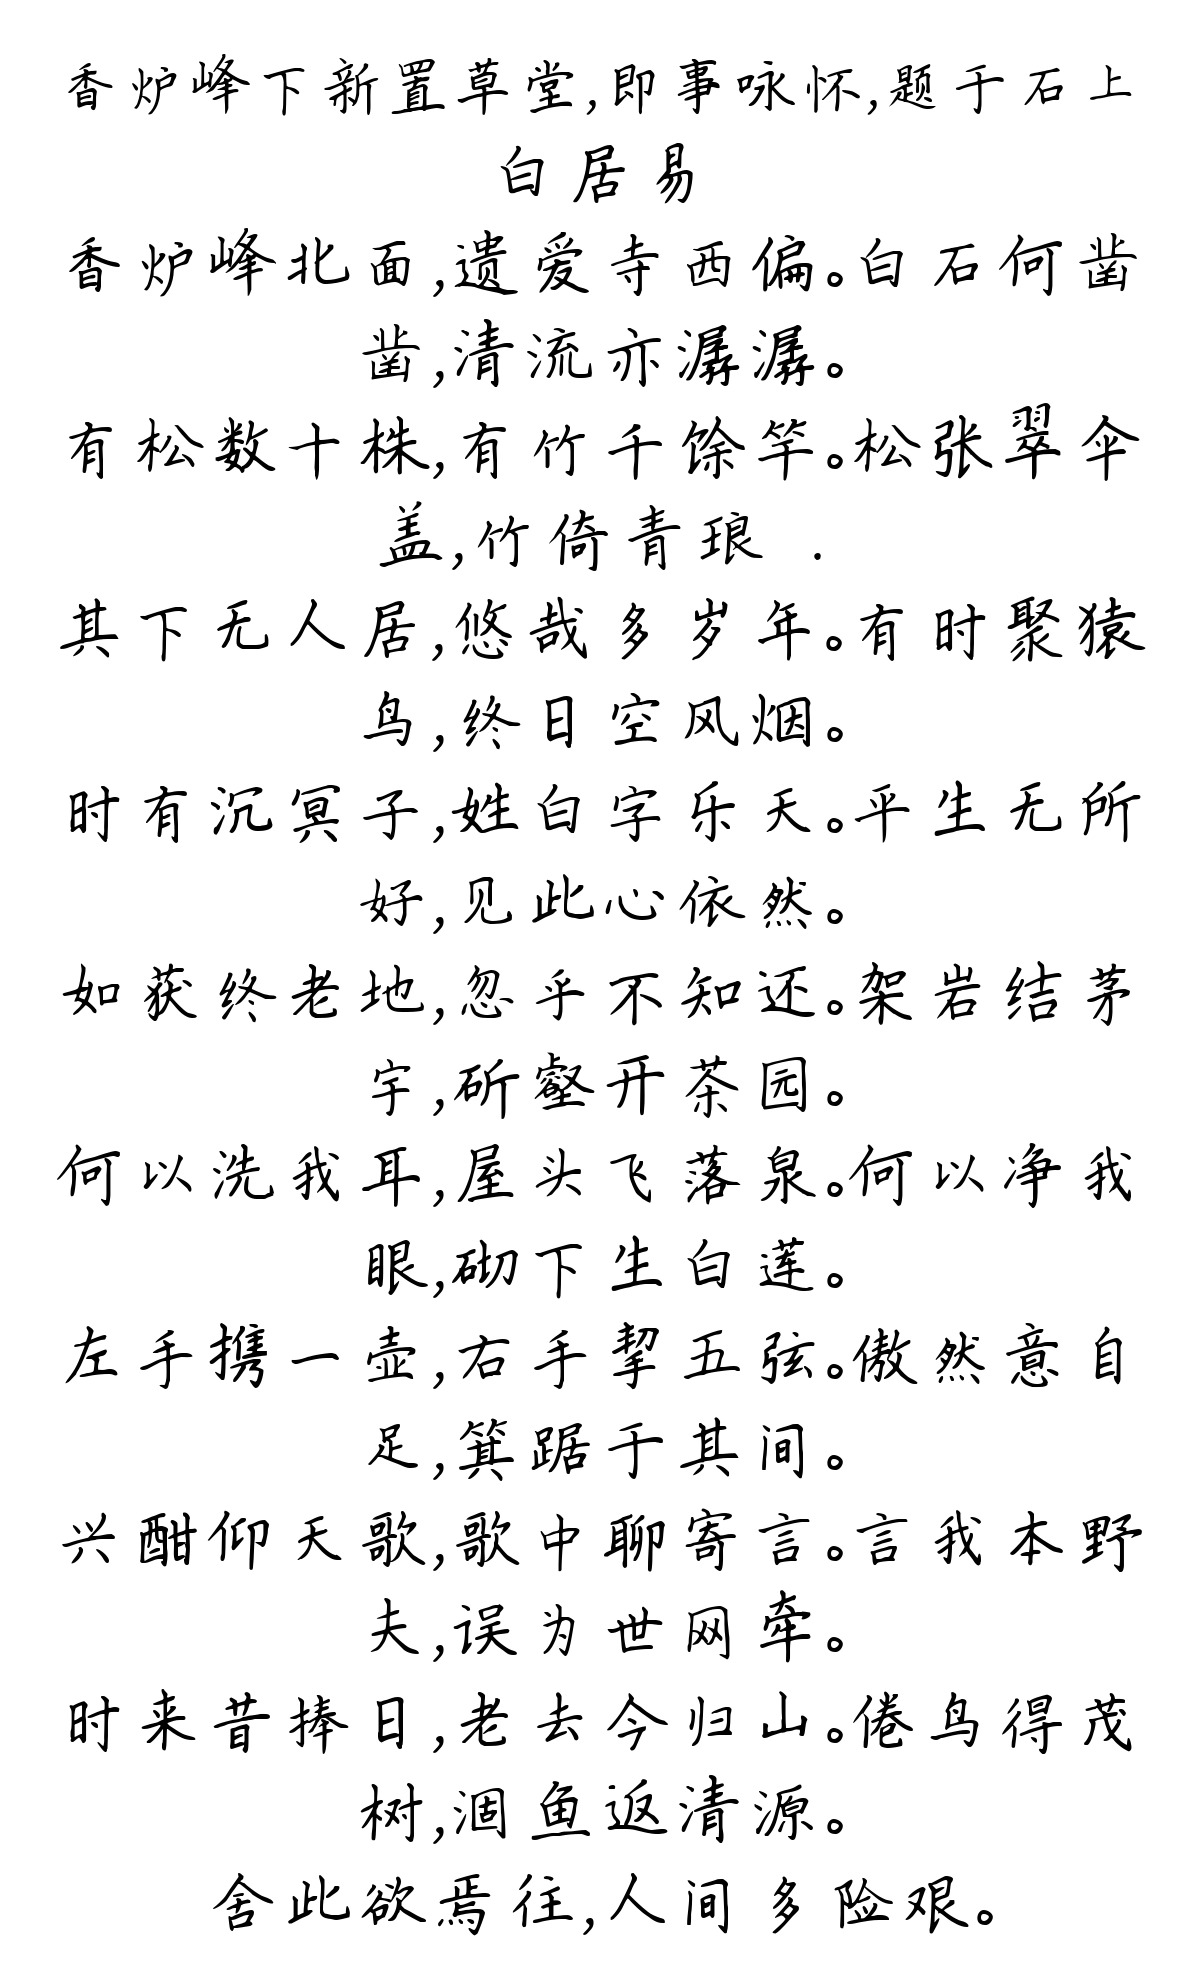 香炉峰下新置草堂,即事咏怀,题于石上
白居易
香炉峰北面,遗爱寺西偏。白石何凿
凿,清流亦潺潺。
有松数十株,有竹千馀竿。松张翠伞
盖,竹倚青琅 .
其下无人居,悠哉多岁年。有时聚猿
鸟,终日空风烟。
时有沉冥子,姓白字乐天。平生无所
好,见此心依然。
如获终老地,忽乎不知还。架岩结茅
宇,斫壑开茶园。
何以洗我耳,屋头飞落泉。何以净我
眼,砌下生白莲。
左手携一壶,右手挈五弦。傲然意自
足,箕踞于其间。
兴酣仰天歌,歌中聊寄言。言我本野
夫,误为世网牵。
时来昔捧日,老去今归山。倦鸟得茂
树,涸鱼返清源。
舍此欲焉往,人间多险艰。